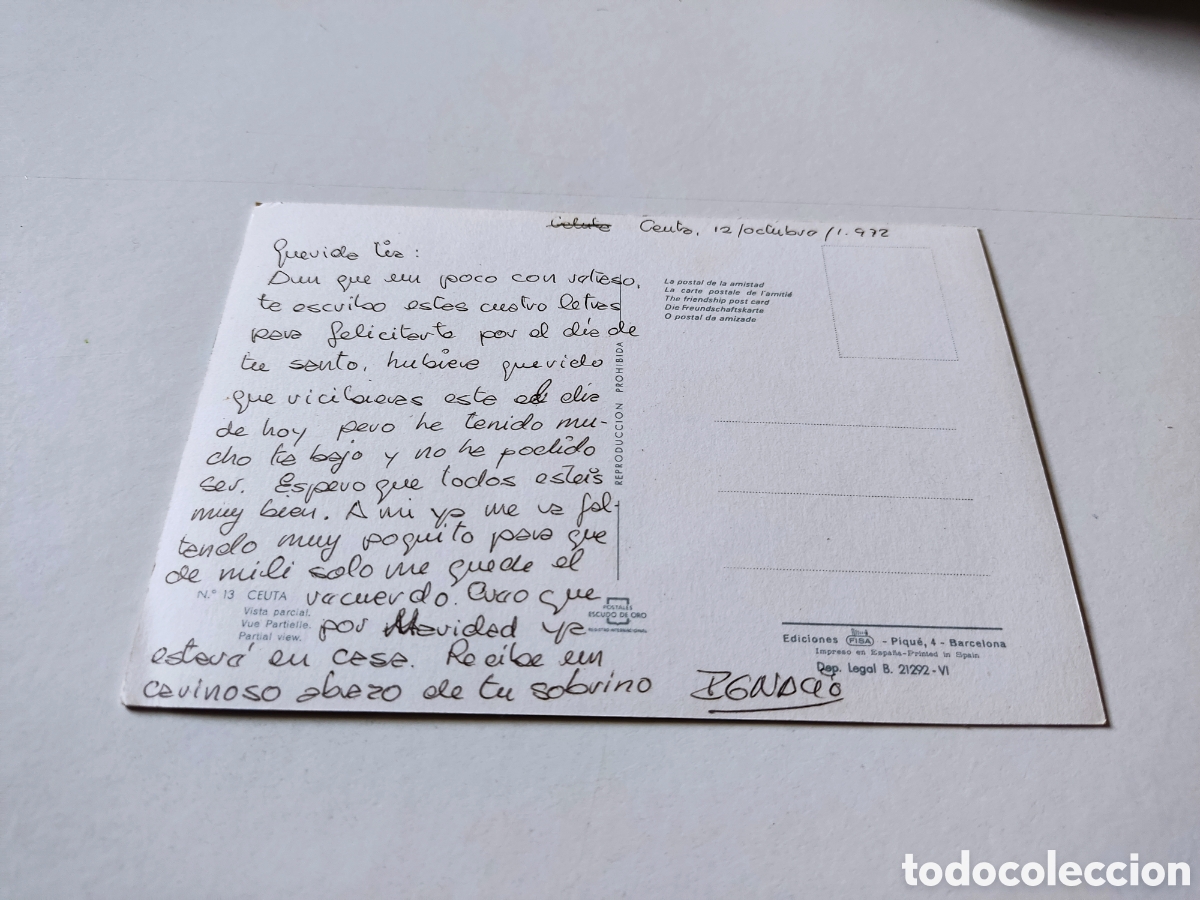 Ceuta, 12/octubre/1.972
Querida tía:
Aun que em poco con retraso,
te escribo estas cuatro letras
para felicitarte por el día de
tu santo, hubiera querido
que recibieras esta el día
de hoy pero he tenido mu-
cho trabajo y no he podido
ser. Espero que todos esteis
muy bien. A mi ya me va fal-
tando muy poquito para que
de mili solo me quede el
recuerdo. Creo que
por Navidad ya
estaré en casa. Recibe em
cariñoso abrazo de tu sobrino
IGNACIO
La postal de la amistad
La carte postale de l'amitié
The friendship post card
Die Freundschaftskarte
O postal da amizade
REPRODUCCION PROHIBIDA
N.º 13 CEUTA
Vista parcial.
Vue Partielle.
Partial view.
POSTALES
ESCUDO DE ORO
Ediciones FISA - Piqué, 4 - Barcelona
Impreso en España-Printed in Spain
Dep. Legal B. 21292-VI
todocoleccion